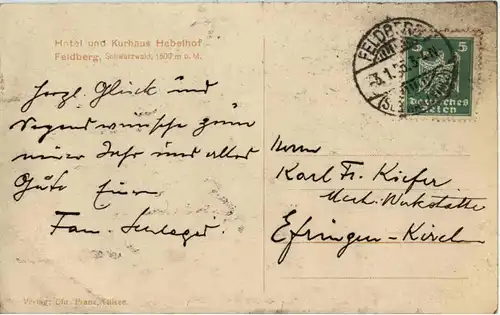 Hotel und Kurhaus Hebelhof
Feldberg, Schwarzwald, 1500 m ü. M.
Herzl. Glück und
Segenswünsche zum
neuen Jahr und alles
Gute Euer
Fam. Schlager.
FELDBERG
3.1.
5 5
Deutsches
Reich
Herrn
Karl Fr. Kiefer
Mech. Werkstätte
Efringen-Kirch
Verlag: Chr. Franz,